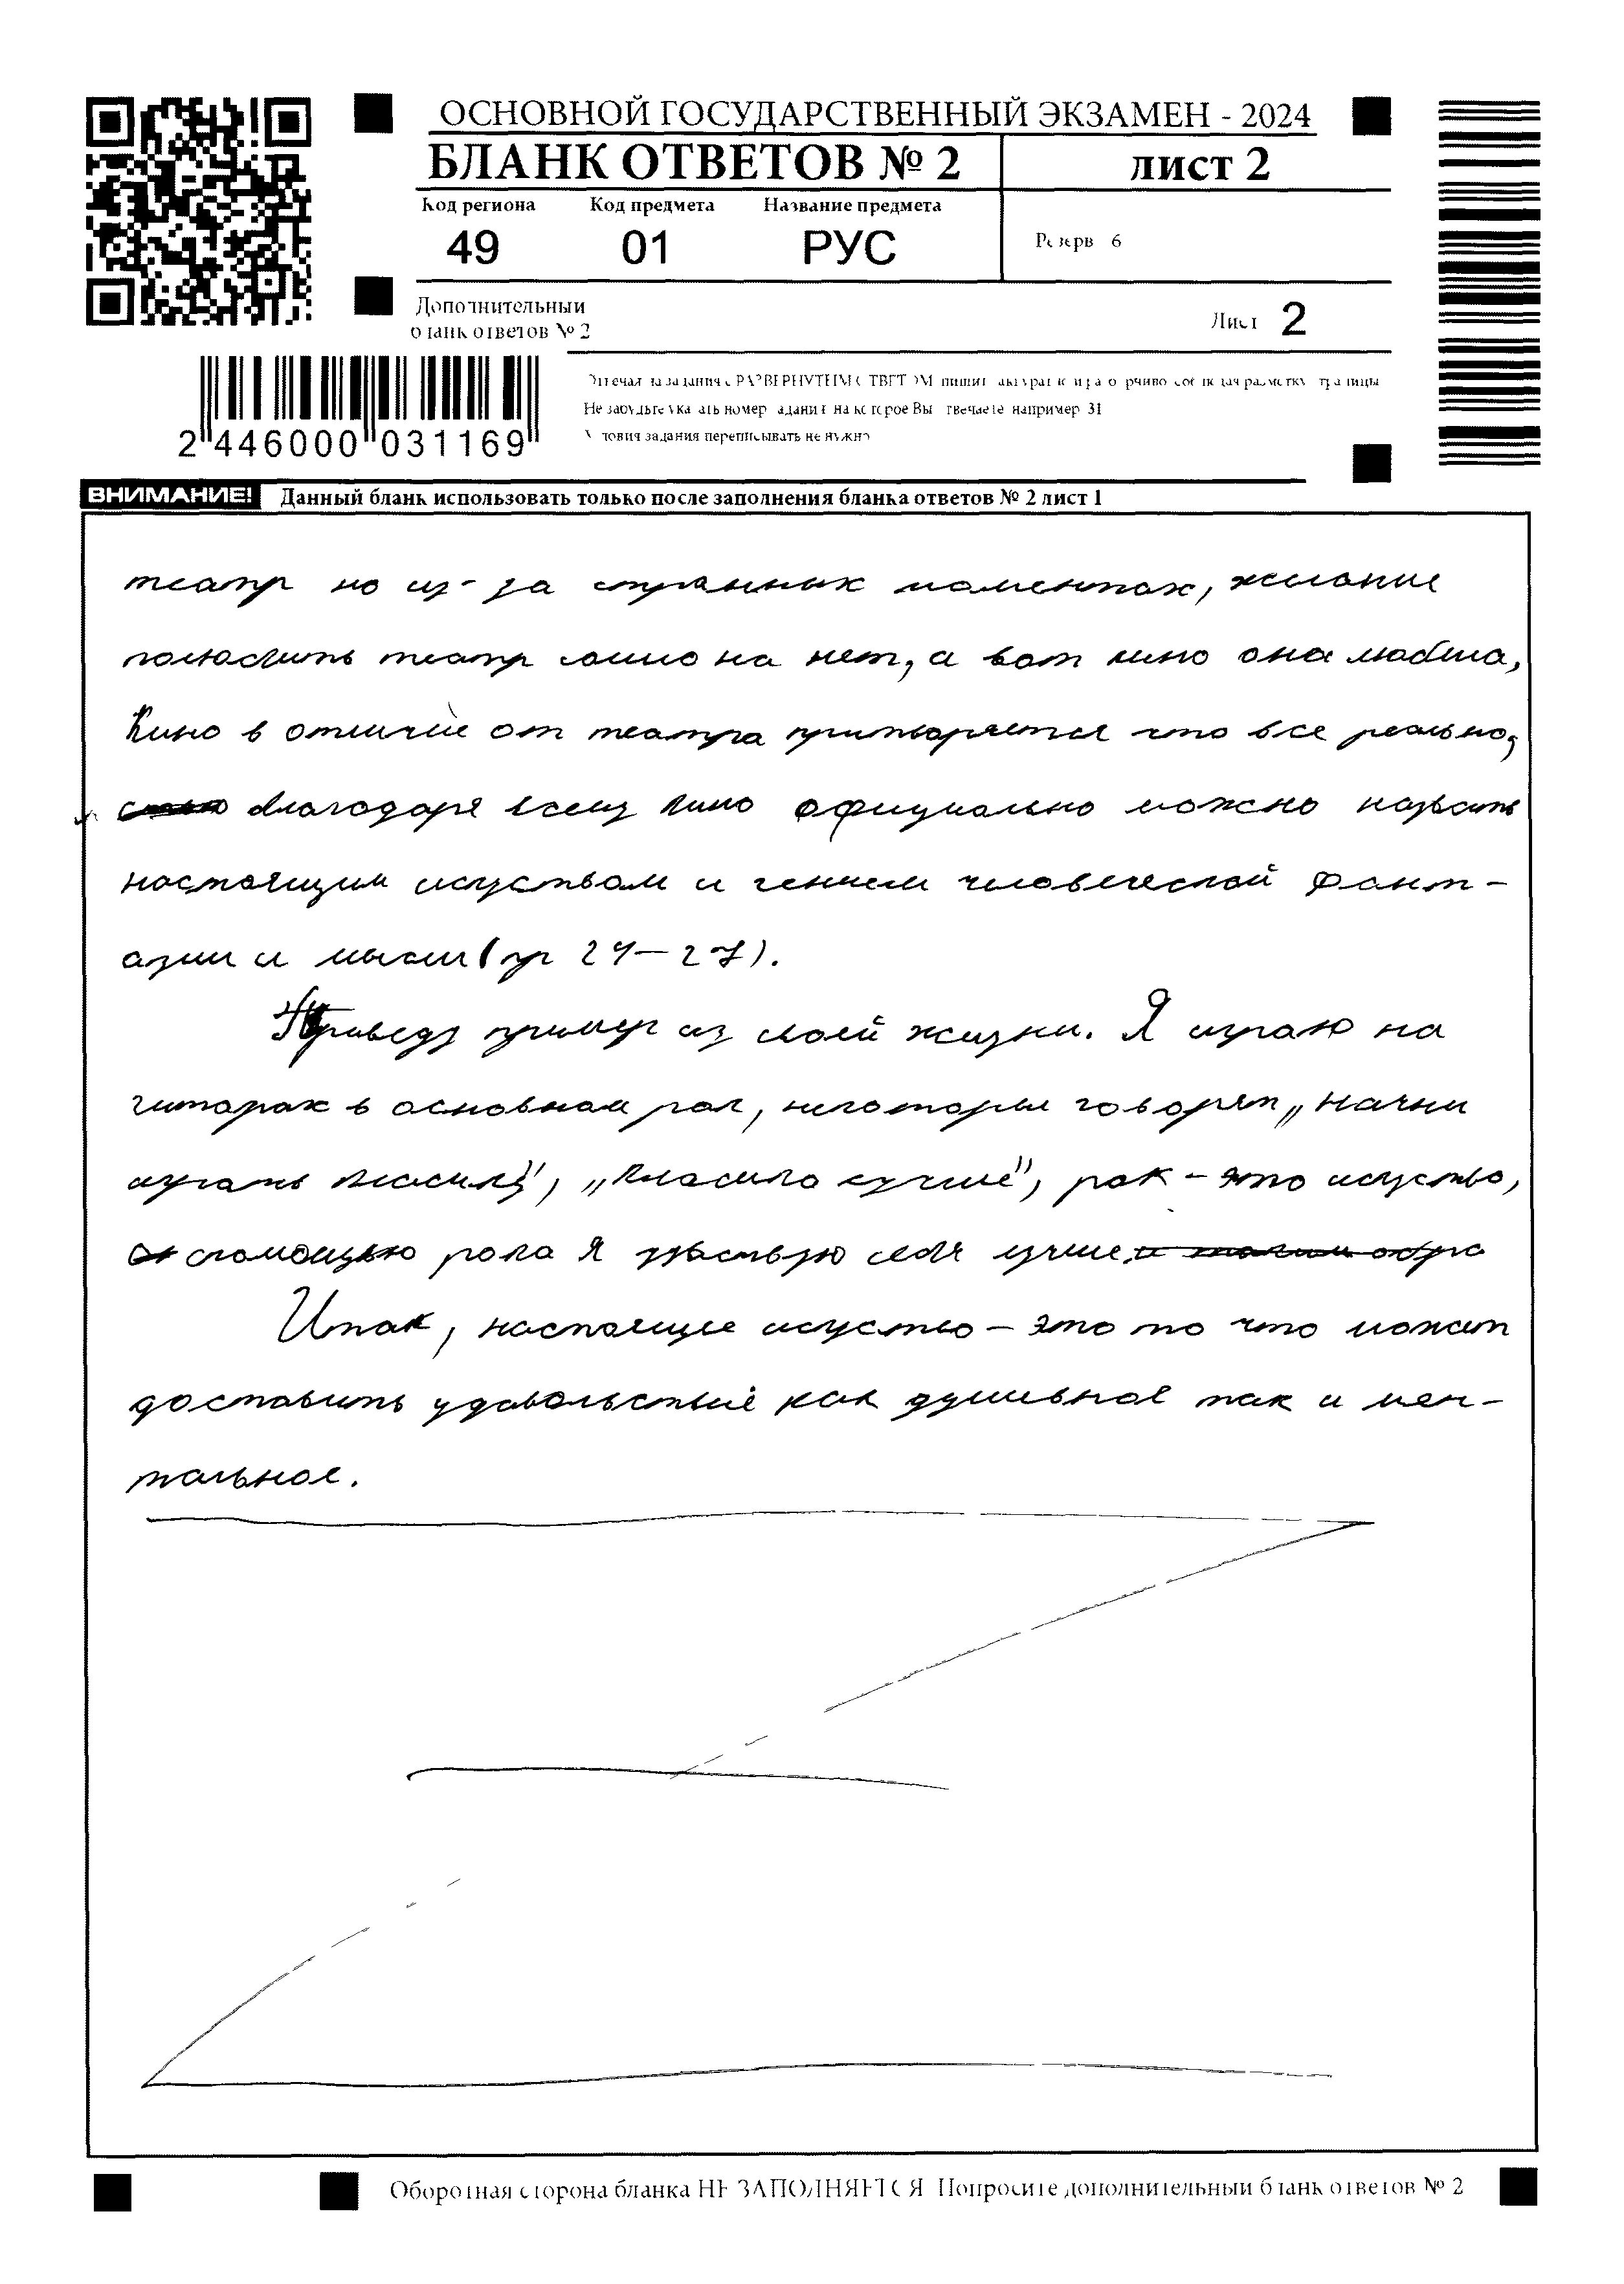 ОСНОВНОЙ ГОСУДАРСТВЕННЫЙ ЭКЗАМЕН - 2024
БЛАНК ОТВЕТОВ № 2
ЛИСТ 2
Код региона Код предмета Название предмета
49 01 РУС
Резерв 6
Дополнительный
бланк ответов № 2
Лист 2
2 446000 031169
Не забудьте указать номер задания на которое Вы отвечаете например 31
Условия задания переписывать не нужно
ВНИМАНИЕ! Данный бланк использовать только после заполнения бланка ответов № 2 лист 1
театр но из-за странных моментах, желание
полюбить театр сошло на нет, а вот кино она любила,
Кино в отличие от театра притворяется что все реально,
благодаря всему кино официально можно назвать
настоящим исуством и гением человеческой фант-
азии и мысли (пр 24-27).
Приведу пример из моей жизни. Я играю на
гитарах в основном рок, некоторые говорят „начни
играть класику", „класика лучше", рок - это исуство,
с помощью рока я чуствую себя лучше
Итак, настоящие исуство - это то что может
доставить удовольствие как душевное так и мен-
тальное.
Оборотная сторона бланка НЕ ЗАПОЛНЯЕТСЯ Попросите дополнительный бланк ответов № 2